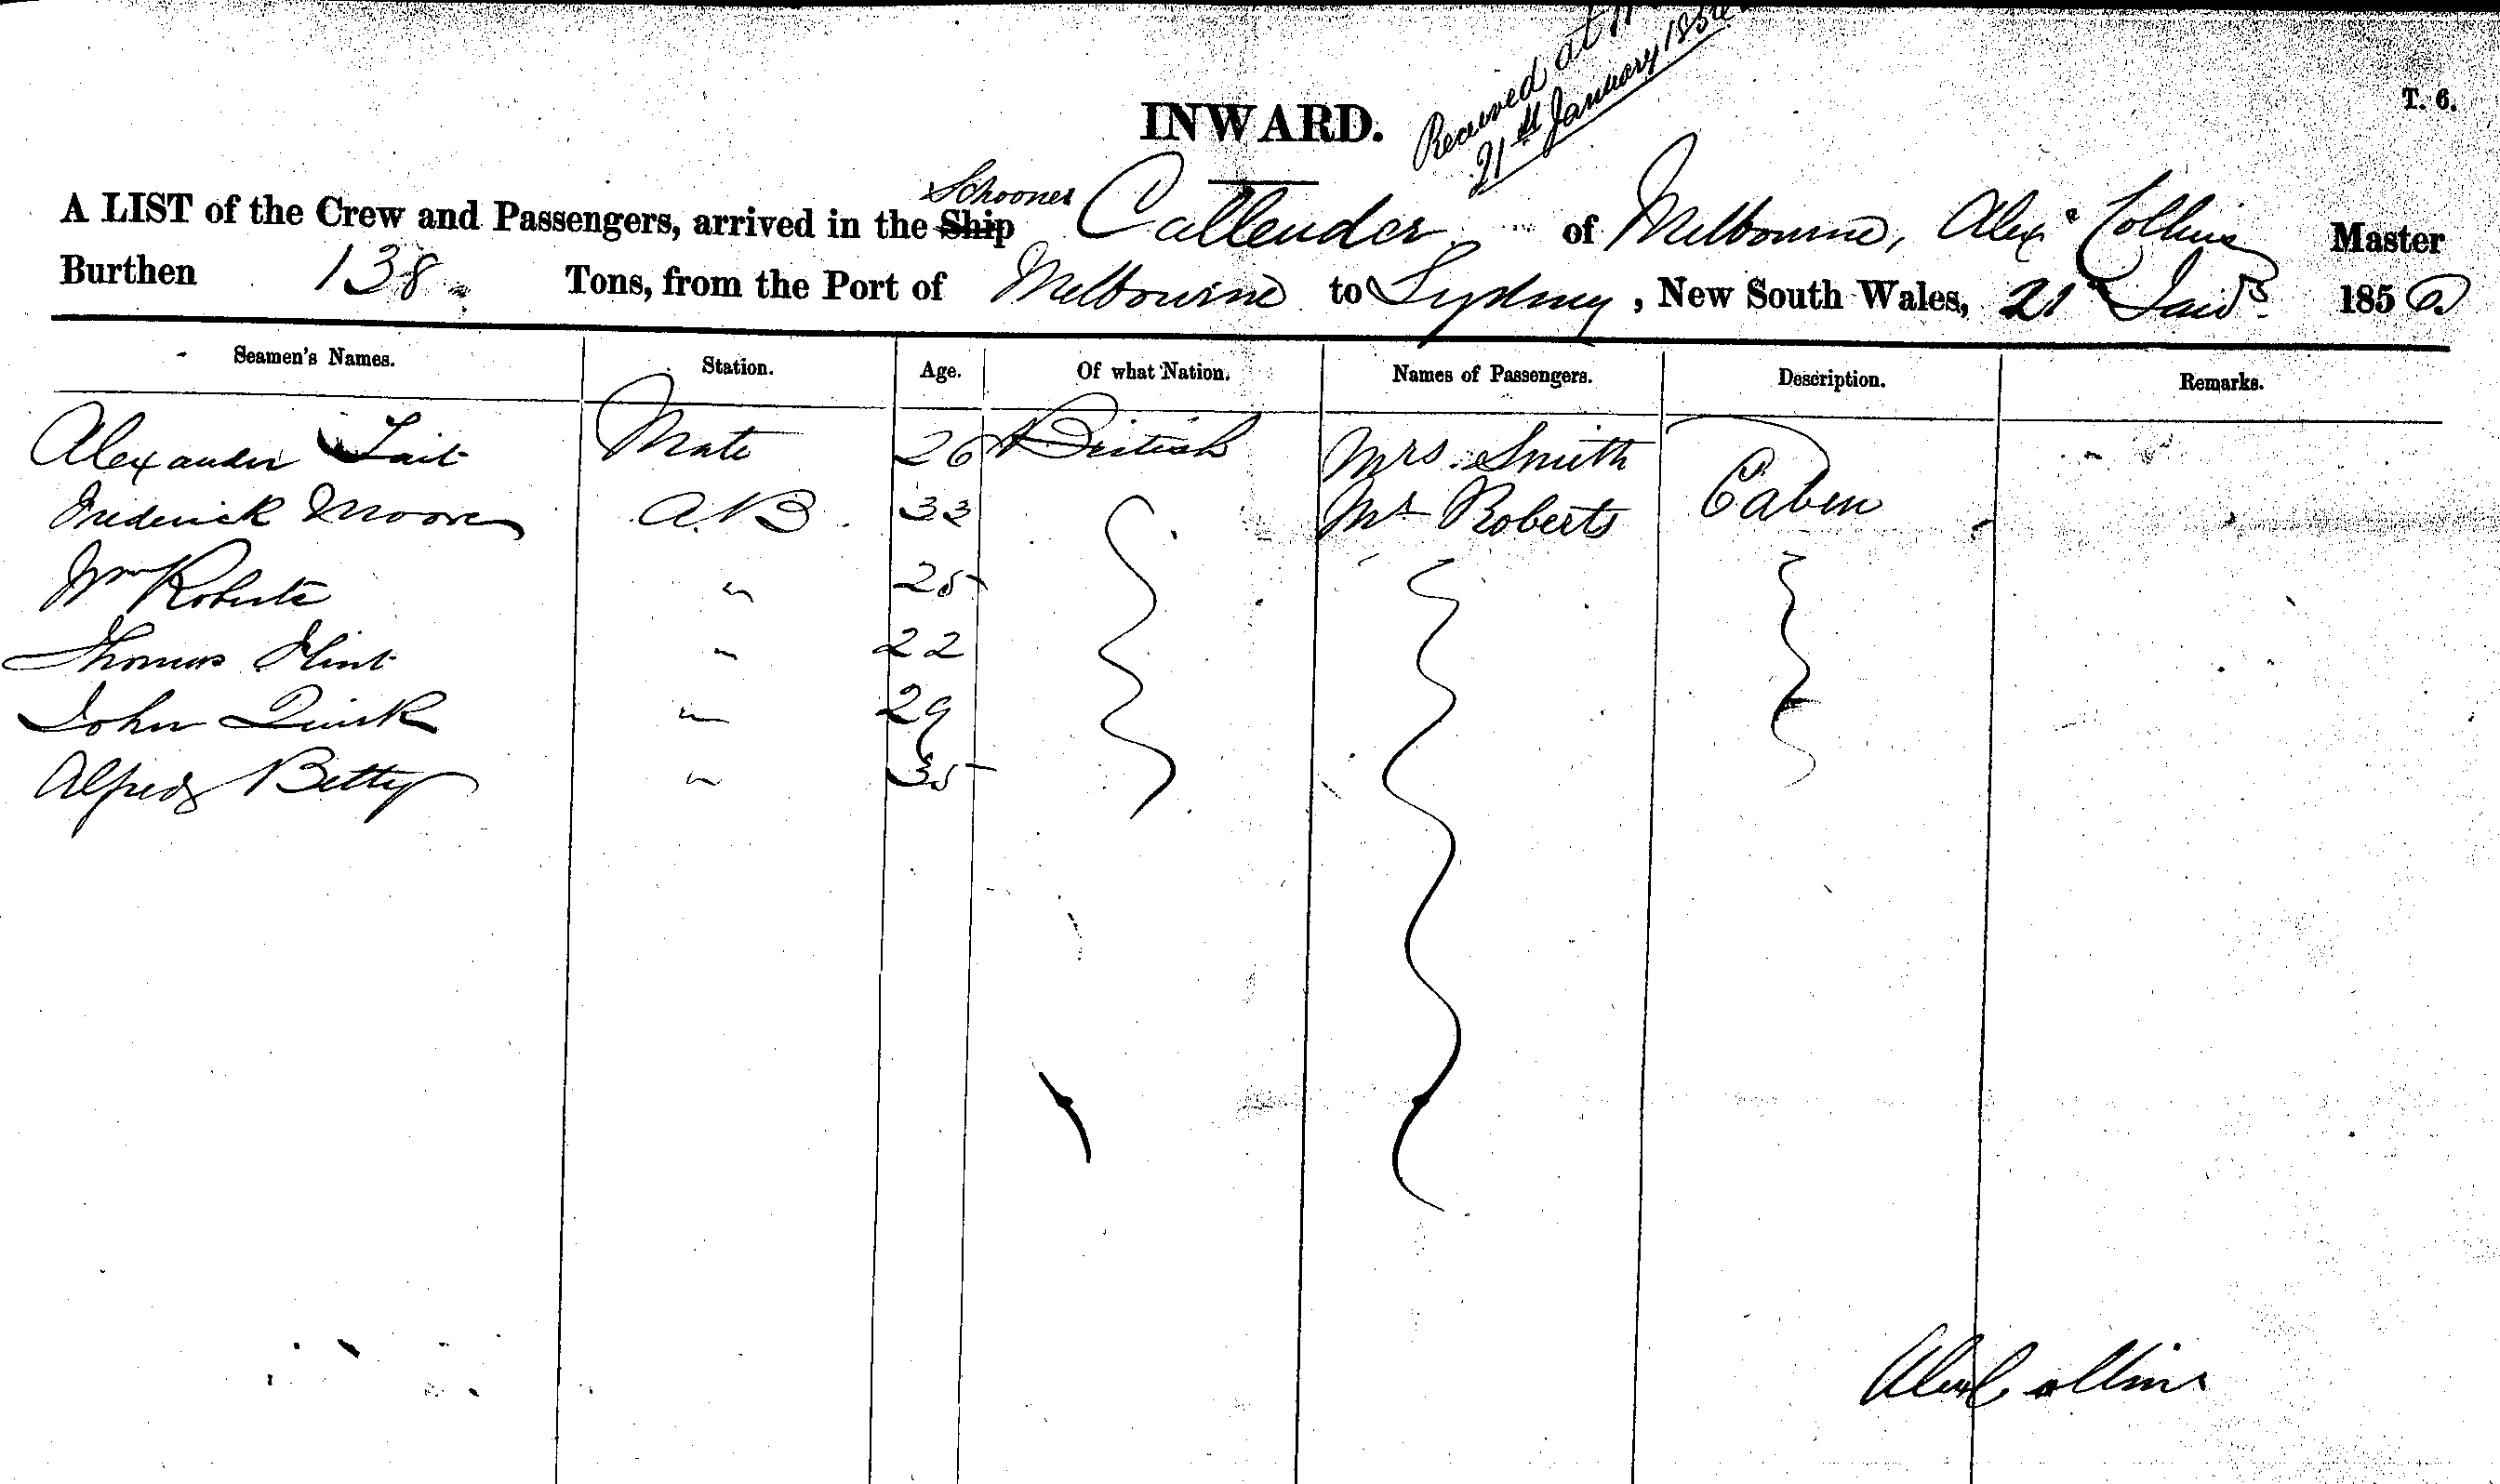 Received at
21st January 185
INWARD.
T. 6.
Schooner
A LIST of the Crew and Passengers, arrived in the Ship Callender of Melbourne, Alexr Collins Master
Burthen 138 Tons, from the Port of Melbourne to Sydney, New South Wales, 21st Jany 1856
Seamen's Names. Station. Age. Of what Nation. Names of Passengers. Description. Remarks.
Alexander Tait Mate 26 British Mrs. Smith
Frederick Moore A.B. 33 Mr Roberts Cabin
Wm Roberts " 25
Thomas Flint " 22
John Quirk " 29
Alfred Betty " 35
Alex Collins